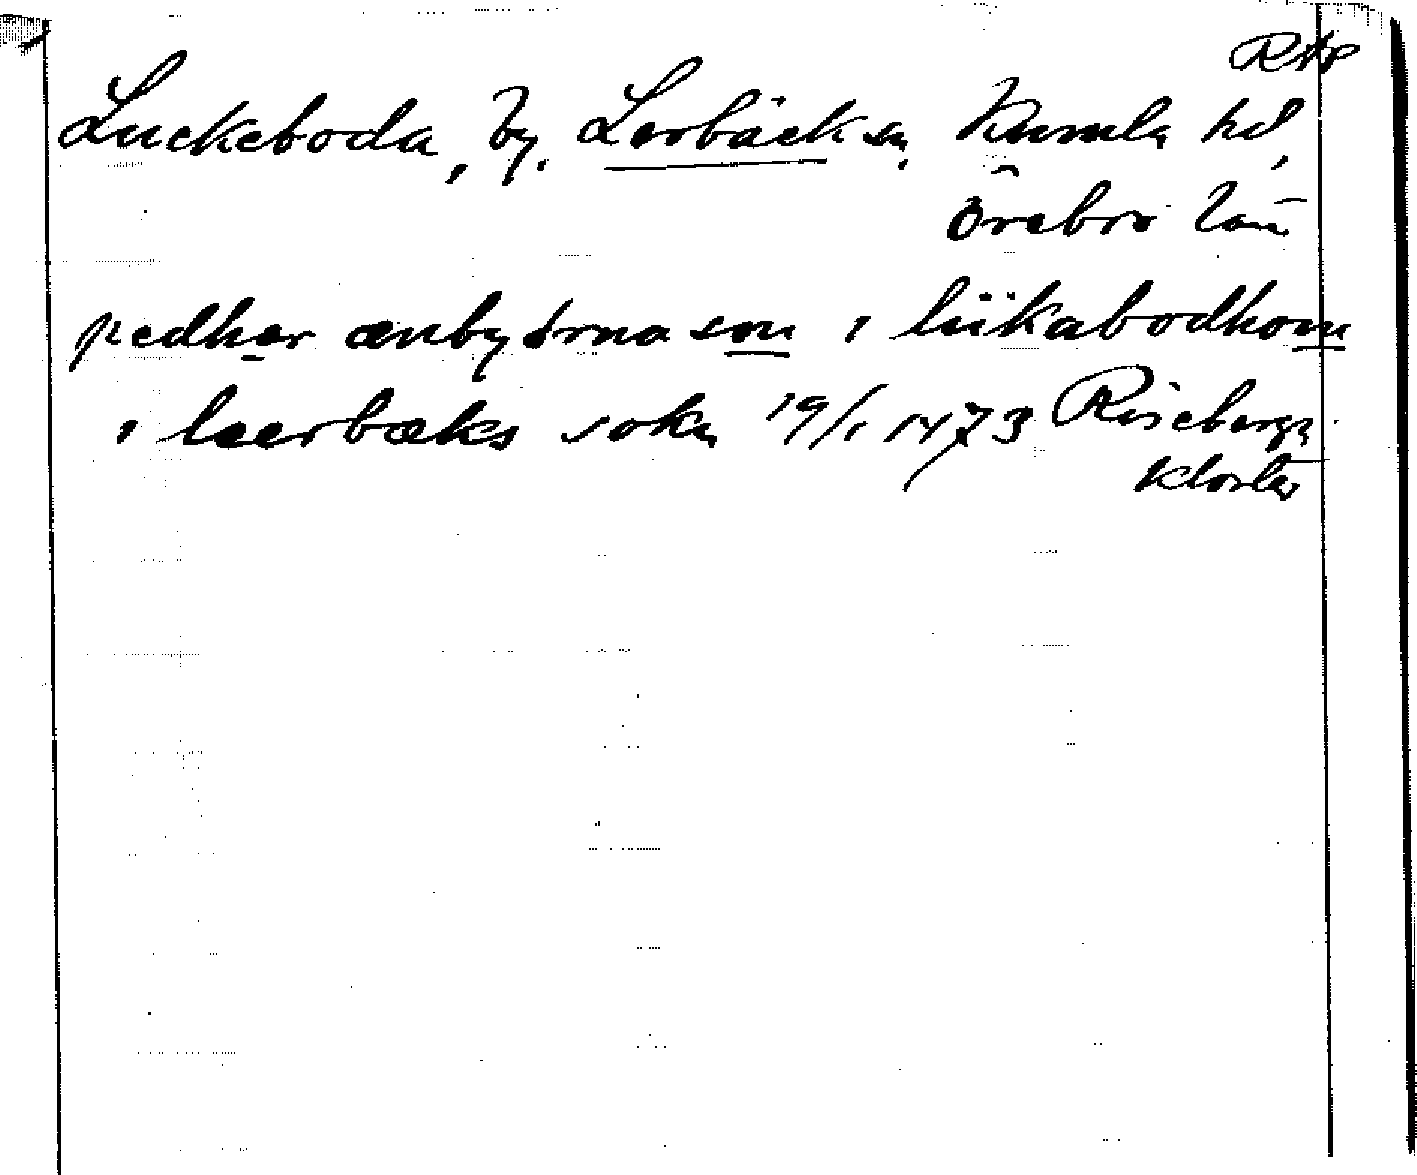 RAP
Luckeboda, by, Lerbäck sn, Kumla hd,
Örebro län
pedher ænbyørnason i lükabodhom
i leerbæks sokn 19/1 1473 Riseberga
kloster